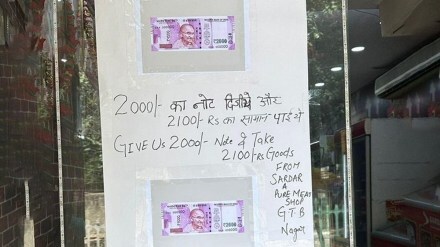 2000/- का नोट दिजीये और
2100/- Rs का सामान पाईये
GIVE US 2000/- Note & Take
2100/-Rs Goods
FROM
SARDAR
A
PURE MEAT
SHOP
G.T.B
Nagar